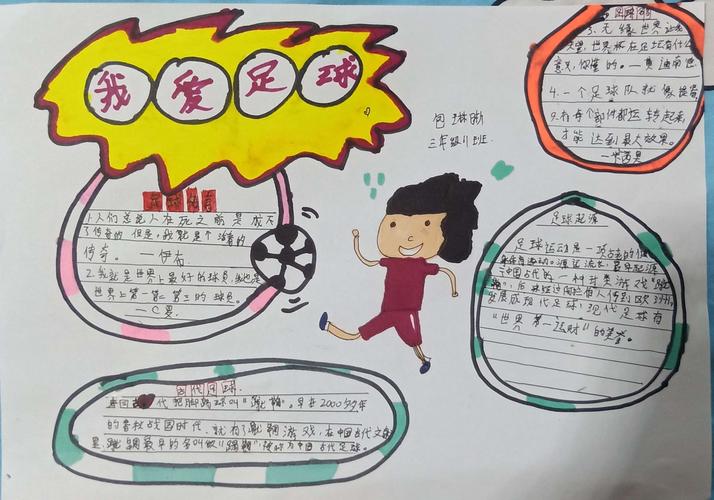 我爱足球
包琳晰
三年级11班
1.人们总说人在死之前是成不
了传奇的但是,我就是个活着的
传奇。——伊布
2.我就是世界上最好的球员,我也是
世界上第一第二第三的球员。
——C罗
3.无缘世界
世界杯在足坛有什么
意义,你懂的。—
4.一个足球队就像
有每个部件都运转起来,
才能达到最大效果。
足球起源
足球运动是一项古老的
中国古代的一种球类游戏"蹴
鞠",后来经过阿拉伯人传到欧洲,
发展成现代足球,现代足球有
"世界第一运动"的美誉。
古代足球
古代把脚踢球叫"蹴鞠"。早在2000多年
的春秋战国时代,就有了蹴鞠游戏,在中国古代文
蹴鞠最早的名叫做"蹋鞠",